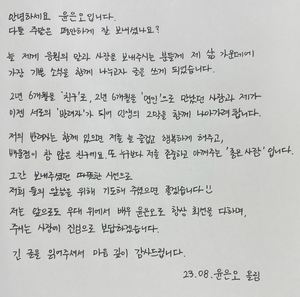 안녕하세요 윤은오입니다.
다들 주말은 편안하게 잘 보내셨나요?
늘 제게 응원의 말과 사랑을 보내주시는 분들께 제 삶 가운데에
가장 기쁜 소식을 함께 나누고자 글을 쓰게 되었습니다.
2년 6개월을 '친구'로, 2년 6개월을 '연인'으로 만났던 사람과 제가
이제 서로의 '반려자'가 되어 인생의 2막을 함께 나아가려 합니다.
저의 반려자는 함께 있으면 저를 늘 즐겁고 행복하게 해주고,
배울점이 참 많은 친구예요. 또 누구보다 저를 존중하고 아껴주는 '좋은 사람'입니다.
그간 보내주셨던 따뜻한 시선으로
저희 둘의 앞날을 위해 기도해 주셨으면 좋겠습니다!!
저는 앞으로도 무대 위에서 배우 윤은오로 항상 최선을 다하며,
주시는 사랑에 진심으로 보답하겠습니다.
긴 글을 읽어주셔서 마음 깊이 감사드립니다.
23.08. 윤은오 올림